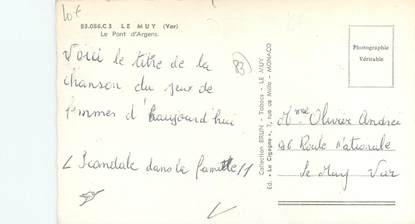 10€
83.086.C3 LE MUY (Var)
Le Pont d'Argens.
83
Voici le titre de la
chanson du jeux de
femmes d'haujourd'hui
Scandale dans la famille
Collection BRUN - Tabacs - LE MUY
Ed. « La Cigogne », 7, rue de Millo - MONACO
Photographie
Véritable
Mme Olivier Andrei
26 Route Nationale
Le Muy Var